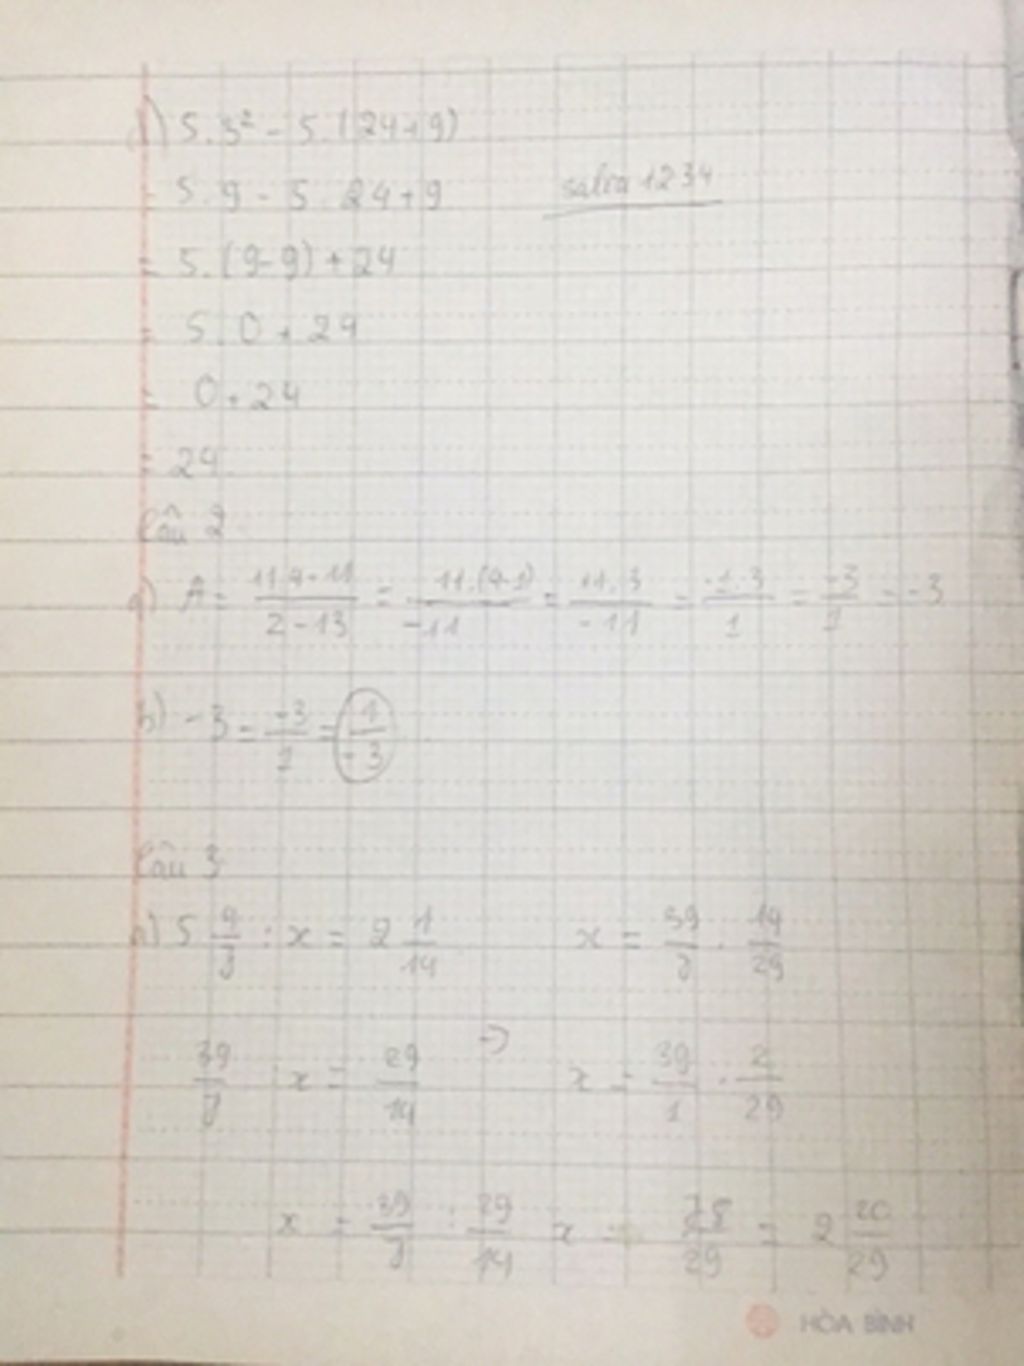 d) 5.3² - 5.(24+9)
= 5.9 - 5.24+9
safra1234
= 5.(9-9)+24
= 5.0+24
= 0+24
= 24
Câu 2
a) A = \frac{11.4-11}{2-13} = \frac{11.(4-1)}{-11} = \frac{11.3}{-11} = \frac{-1.3}{1} = \frac{-3}{1} = -3
b) -3 = \frac{-3}{1} = \frac{1}{-3}
Câu 3
a) 5\frac{4}{7} : x = 2\frac{1}{14} x = \frac{39}{7} . \frac{14}{29}
\frac{39}{7} : x = \frac{29}{14} => x = \frac{39}{1} . \frac{2}{29}
x = \frac{39}{7} : \frac{29}{14} x = \frac{78}{29} = 2\frac{20}{29}
HÒA BÌNH